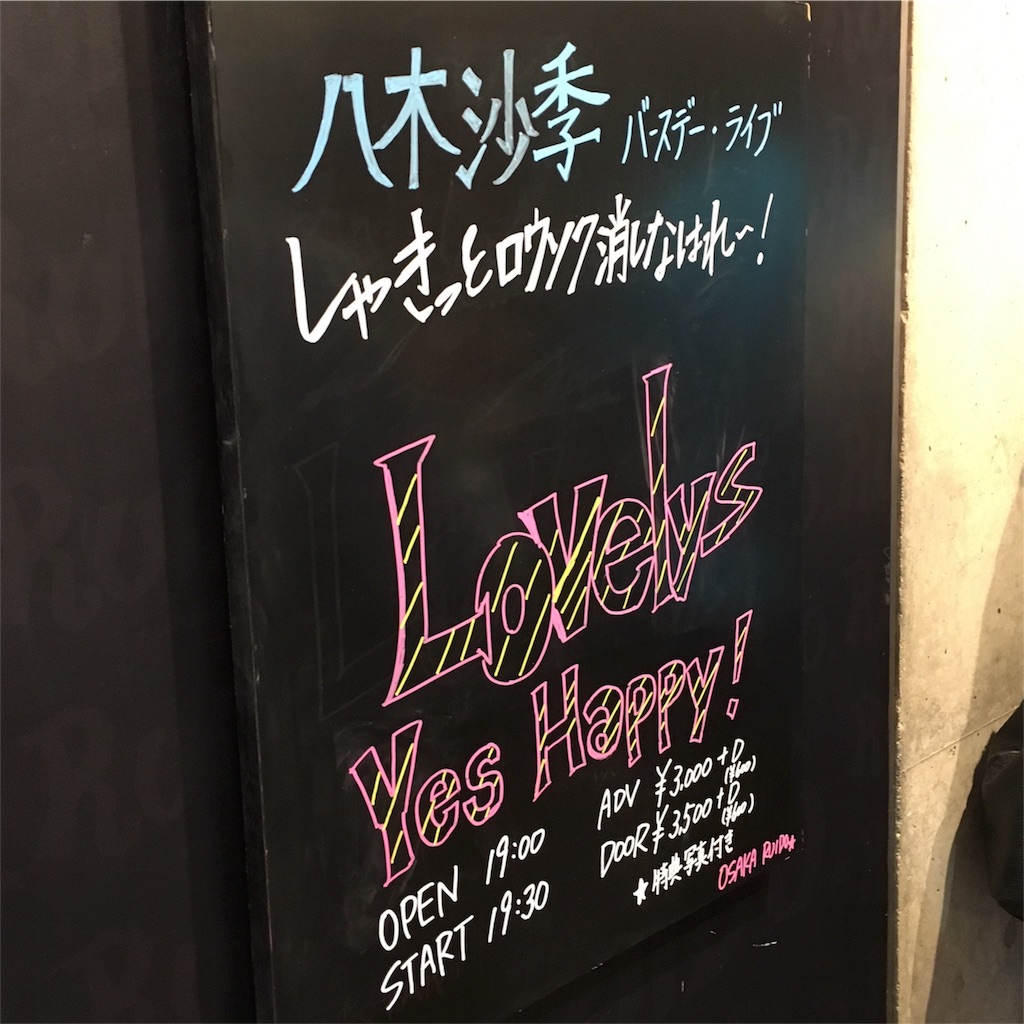 八木沙季 バースデー・ライブ
しゃきっとロウソク消しなはれ〜！
Lovelys
Yes Happy!
OPEN 19:00
START 19:30
ADV ¥3,000+D
(¥600)
DOOR ¥3,500+D
(¥600)
★特典写真付き
OSAKA RUIDO★